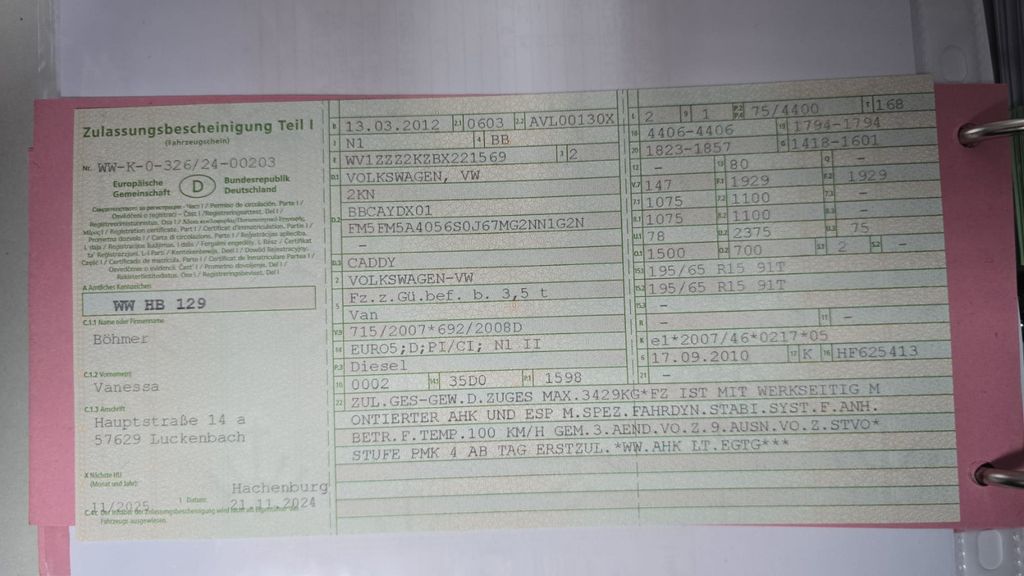 Zulassungsbescheinigung Teil I
(Fahrzeugschein)
Nr. WW-K-0-326/24-00203
Europäische Gemeinschaft
D
Bundesrepublik Deutschland
A Amtliches Kennzeichen
WW HB 129
C.1.1 Name oder Firmenname
Böhmer
C.1.2 Vorname(n)
Vanessa
C.1.3 Anschrift
Hauptstraße 14 a
57629 Luckenbach
X Nächste HU
(Monat und Jahr)
11/2025
I Datum:
Hachenburg
21.11.2024
C.4c Der Inhaber der Zulassungsbescheinigung wird nicht als Eigentümer des
Fahrzeugs ausgewiesen.
B 13.03.2012 2.1 0603 2.2 AVL00130X
J N1 4 BB
E WV1ZZZ2KZBX221569 3 2
D.1 VOLKSWAGEN, VW
2KN
D.2 BBCAYDX01
FM5FM5A4056S0J67MG2NN1G2N
–
D.3 CADDY
2 VOLKSWAGEN-VW
5 Fz.z.Gü.bef. b. 3,5 t
Van
V.9 715/2007*692/2008D
14 EURO5;D;PI/CI; N1 II
P.3 Diesel
10 0002 14.1 35D0 P.1 1598
L 2 9 1 P.2 P.4 75/4400 T 168
18 4406-4406 19 1794-1794
20 1823-1857 G 1418-1601
12 – 13 80 Q –
V.7 147 F.1 1929 F.2 1929
7.1 1075 7.2 1100 7.3 –
8.1 1075 8.2 1100 8.3 –
U.1 78 U.2 2375 U.3 75
O.1 1500 O.2 700 S.1 2 S.2 –
15.1 195/65 R15 91T
15.2 195/65 R15 91T
15.3 –
R – 11 –
K e1*2007/46*0217*05
6 17.09.2010 17 K 16 HF625413
21 –
22 ZUL.GES-GEW.D.ZUGES MAX.3429KG*FZ IST MIT WERKSEITIG M
ONTIERTER AHK UND ESP M.SPEZ.FAHRDYN.STABI.SYST.F.ANH.
BETR.F.TEMP.100 KM/H GEM.3.AEND.VO.Z.9.AUSN.VO.Z.STVO*
STUFE PMK 4 AB TAG ERSTZUL.*WW.AHK LT.EGTG***